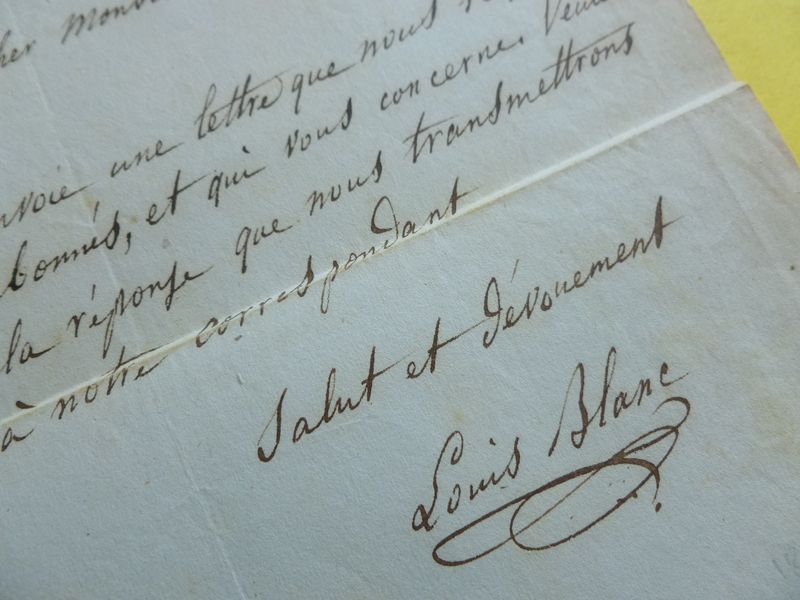 cher Mons
envoie une lettre que nous r
bonnés, et qui vous concerne. Veui
la réponse que nous transmettrons
à notre correspondant
Salut et dévouement
Louis Blanc